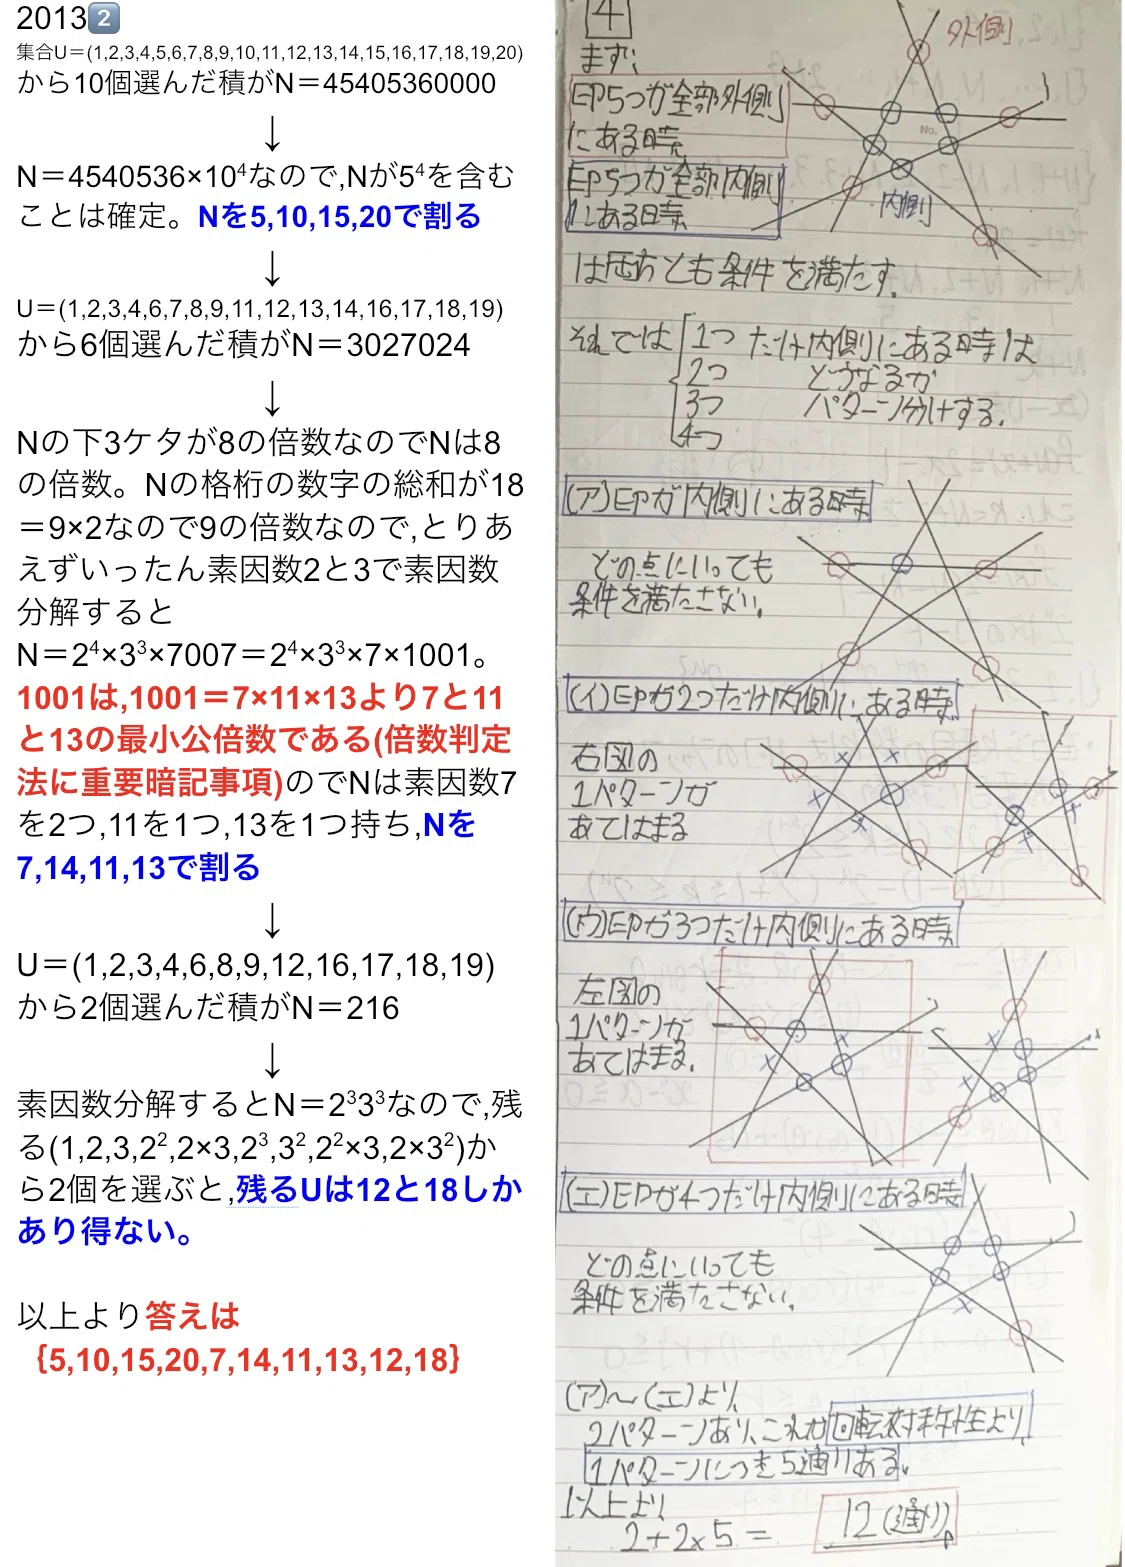 20132
集合U＝(1,2,3,4,5,6,7,8,9,10,11,12,13,14,15,16,17,18,19,20)
から10個選んだ積がN＝45405360000
↓
N＝4540536×10⁴なので,Nが5⁴を含む
ことは確定。Nを5,10,15,20で割る
↓
U＝(1,2,3,4,6,7,8,9,11,12,13,14,16,17,18,19)
から6個選んだ積がN＝3027024
↓
Nの下3ケタが8の倍数なのでNは8
の倍数。Nの格桁の数字の総和が18
＝9×2なので9の倍数なので,とりあ
えずいったん素因数2と3で素因数
分解すると
N＝2⁴×3³×7007＝2⁴×3³×7×1001。
1001は,1001＝7×11×13より7と11
と13の最小公倍数である(倍数判定
法に重要暗記事項)のでNは素因数7
を2つ,11を1つ,13を1つ持ち,Nを
7,14,11,13で割る
↓
U＝(1,2,3,4,6,8,9,12,16,17,18,19)
から2個選んだ積がN＝216
↓
素因数分解するとN＝2³3³なので,残
る(1,2,3,2²,2×3,2³,3²,2²×3,2×3²)か
ら2個を選ぶと,残るUは12と18しか
あり得ない。
以上より答えは
{5,10,15,20,7,14,11,13,12,18}
4
まず、
EP5つが全部外側
にある時、
EP5つが全部内側
にある時
は両方とも条件を満たす。
外側
No.
内側
それでは 1つ だけ内側にある時は
2つ どうなるか
3つ パターン分けする。
4つ
(ア)EPが内側にある時
どの点にいっても
条件を満たさない。
(イ)EPが2つだけ内側にある時
右図の
1パターンが
あてはまる
(ウ)EPが3つだけ内側にある時
左図の
1パターンが
あてはまる。
(エ)EPが4つだけ内側にある時
どの点にいっても
条件を満たさない。
(ア)～(エ)より、
2パターンあり、これも回転対称性より、
1パターンにつき5通りある。
以上より
2+2×5= 12(通り)